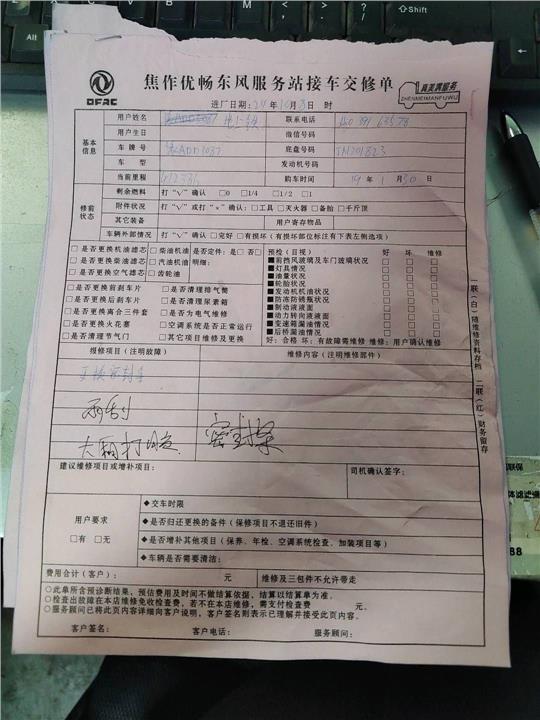 Shift
DFAC
焦作优畅东风服务站接车交修单
真美满服务
ZHENMEIMANFUWU
进厂日期:24年10月8日 时
用户姓名 联系电话
基本信息
用户生日 微信号码
车牌号 底盘号码 JM201823
车 型 发动机号码
当前里程 612336 购车时间 19年1月30日
修前状态
剩余燃料 打“√”确认 □0 □1/4 □1/2 □1
附件状况 打“√”或打“×”确认:□工具 □灭火器 □备胎 □千斤顶
其它装备 用户寄存物品
车辆外部情况 打“√”确认 □完好 □有损坏(有损坏部位标注有下表左侧选项)
□是否更换机油滤芯 □柴油机油 是否定件:是□ 否□
□是否更换柴油滤芯 □汽油机油 明细:
□是否更换空气滤芯 □齿轮油
□是否更换前刹车片 □是否清理排气筒
□是否更换后刹车片 □是否清理尿素箱
□是否更换离合三件套 □是否为电气维修
□是否更换火花塞 □空调系统是否正常运行
□是否清理节气门 □其它项目维修及更换
预检(目视) 好 坏 维修
■前挡风玻璃及车门玻璃状况 □ □ □
■灯具情况 □ □ □
■油量状况 □ □ □
■轮胎状况 □ □ □
■发动机机油状况 □ □ □
■防冻防锈瓶状况 □ □ □
■制动液液面 □ □ □
■动力转向液液面 □ □ □
■变速箱漏油情况 □ □ □
■后桥漏油情况 □ □ □
好:合格 坏:有故障需维修 维修:用户确认维修
报修项目(注明故障) 维修内容(注明维修部件)
雨刮
密封条
建议维修项目或增补项目: 司机确认签字:
用户要求
□有 □无
◆交车时限
◆是否归还更换的备件(保修项目不退还旧件)
◆是否增补其他项目(保养、年检、空调系统检查、加装项目等)
◆车辆是否需要清洁:
费用合计(客户): 元 维修及三包件不允许带走
○此单所含预诊断结果,预估费用及时间不做结算依据,结算以结算单为准。
○检查出故障在本店维修免收检查费,若不在本店维修,需支付检查费 元。
○服务顾问已将此页内容详细向客户说明,客户签名则表示已理解并接受此页内容。
客户签名: 客户电话: 服务顾问:
一联(白)随维修资料存档 二联(红)财务留存